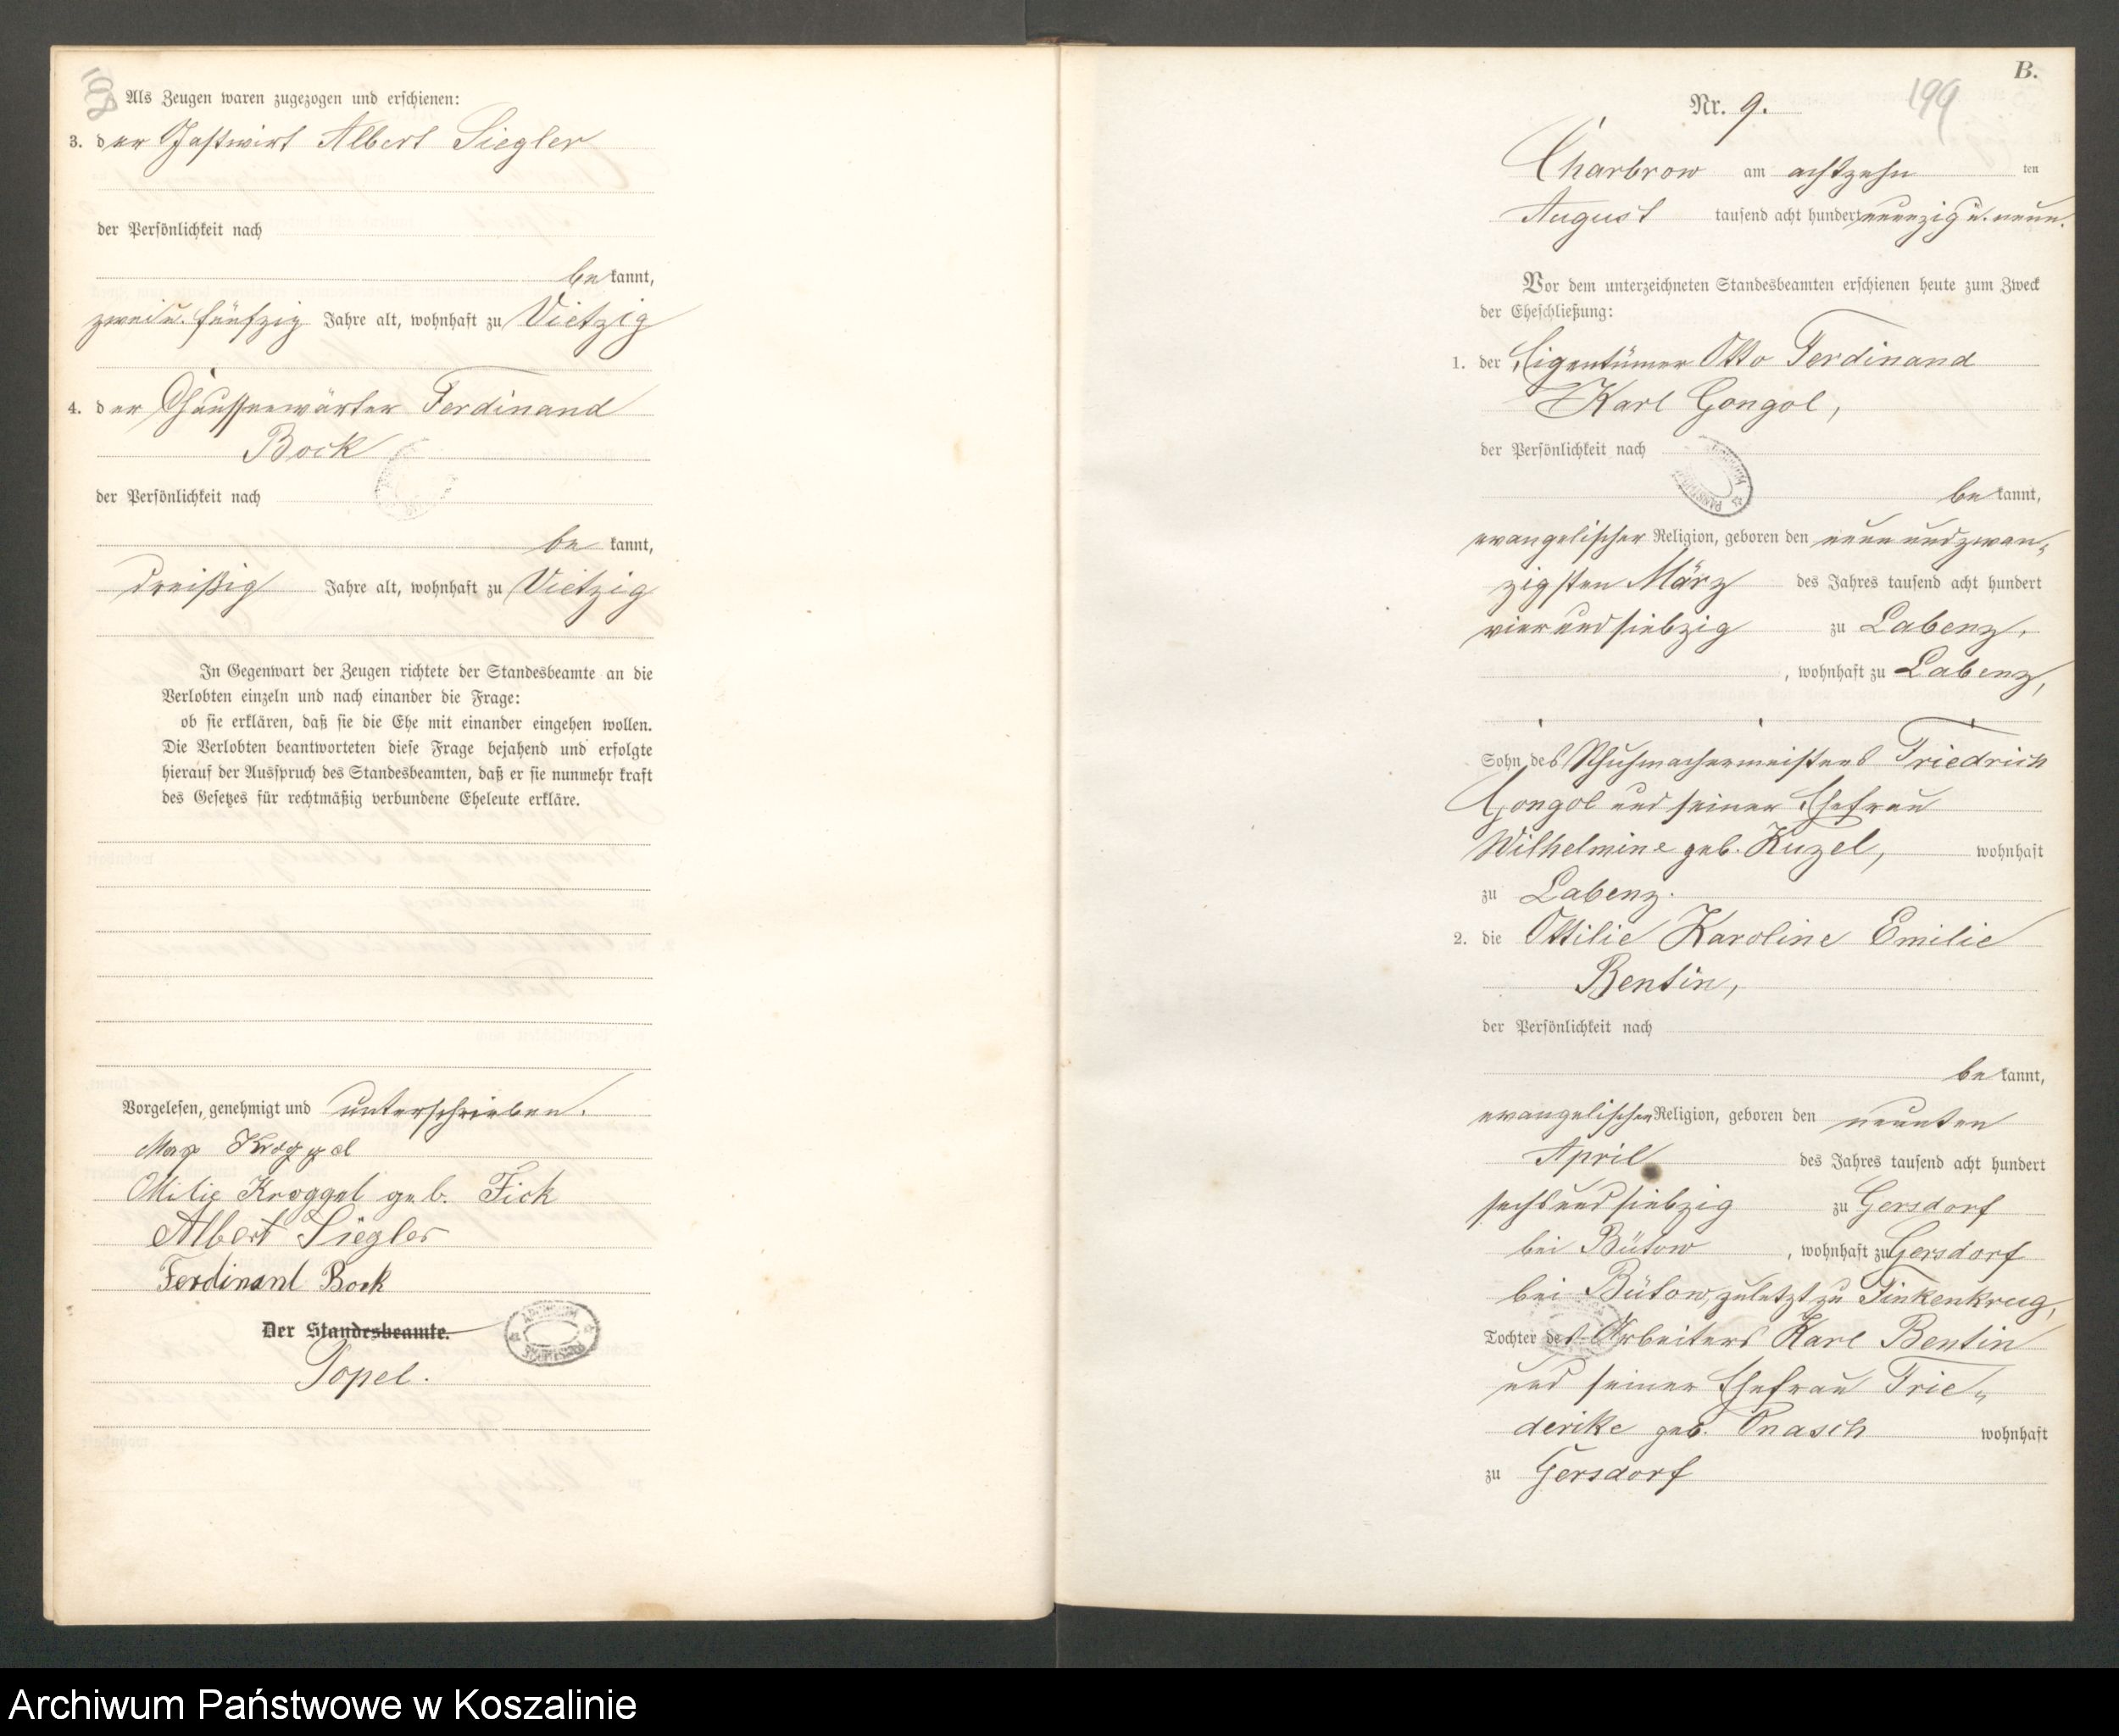 198
Als Zeugen waren zugezogen und erschienen:
3. der Gastwirt Albert Siegler
der Persönlichkeit nach
bekannt,
zwei u. fünfzig Jahre alt, wohnhaft zu Vietzig
4. der Chausseewärter Ferdinand
Bock
der Persönlichkeit nach
bekannt,
dreißig Jahre alt, wohnhaft zu Vietzig
In Gegenwart der Zeugen richtete der Standesbeamte an die
Verlobten einzeln und nach einander die Frage:
ob sie erklären, daß sie die Ehe mit einander eingehen wollen.
Die Verlobten beantworteten diese Frage bejahend und erfolgte
hierauf der Ausspruch des Standesbeamten, daß er sie nunmehr kraft
des Gesetzes für rechtmäßig verbundene Eheleute erkläre.
Vorgelesen, genehmigt und unterschrieben.
Max Kroggel
Ottilie Kroggel geb. Fick
Albert Siegler
Ferdinant Bock
Der Standesbeamte.
Popel.
B.
199
Nr. 9.
Charbrow am achtzehn ten
August tausend acht hundert neunzig u. neun.
Vor dem unterzeichneten Standesbeamten erschienen heute zum Zweck
der Eheschließung:
1. der Eigentümer Otto Ferdinand
Karl Gongol,
der Persönlichkeit nach
bekannt,
evangelischer Religion, geboren den neun und zwan-
zigsten März des Jahres tausend acht hundert
vier und siebzig zu Labenz,
, wohnhaft zu Labenz,
Sohn des Schuhmachermeisters Friedrich
Gongol und seiner Ehefrau
Wilhelmine geb. Kuzel, wohnhaft
zu Labenz.
2. die Ottilie Karoline Emilie
Bentin,
der Persönlichkeit nach
bekannt,
evangelischer Religion, geboren den neunten
April des Jahres tausend acht hundert
sechs und siebzig zu Gersdorf
bei Bütow, wohnhaft zu Gersdorf
bei Bütow, zuletzt zu Finkenkrug,
Tochter des Arbeiters Karl Bentin
und seiner Ehefrau Frie-
derike geb. Onasch wohnhaft
zu Gersdorf
Archiwum Państwowe w Koszalinie